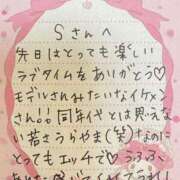 Sさんへ
先日はとっても楽しい
ラブタイムをありがとう♡
モデルさんみたいなイケメン
さん。。同年代とは思えな
い若さうらやま(笑)なのに
とってもエッチで♡うふふ、